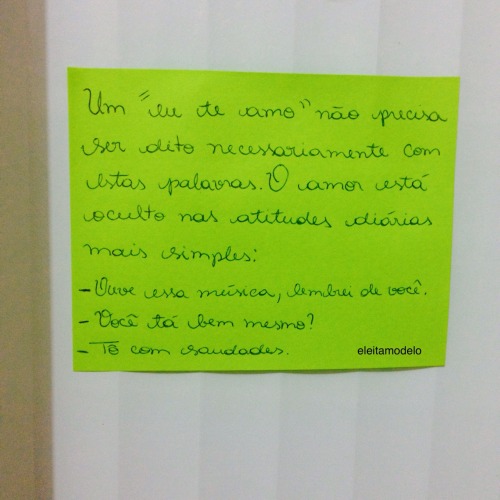 Um "eu te amo" não precisa
ser dito necessariamente com
estas palavras. O amor está
oculto nas atitudes diárias
mais simples:
- Ouve essa música, lembrei de você.
- Você tá bem mesmo?
- Tô com saudades.
eleitamodelo